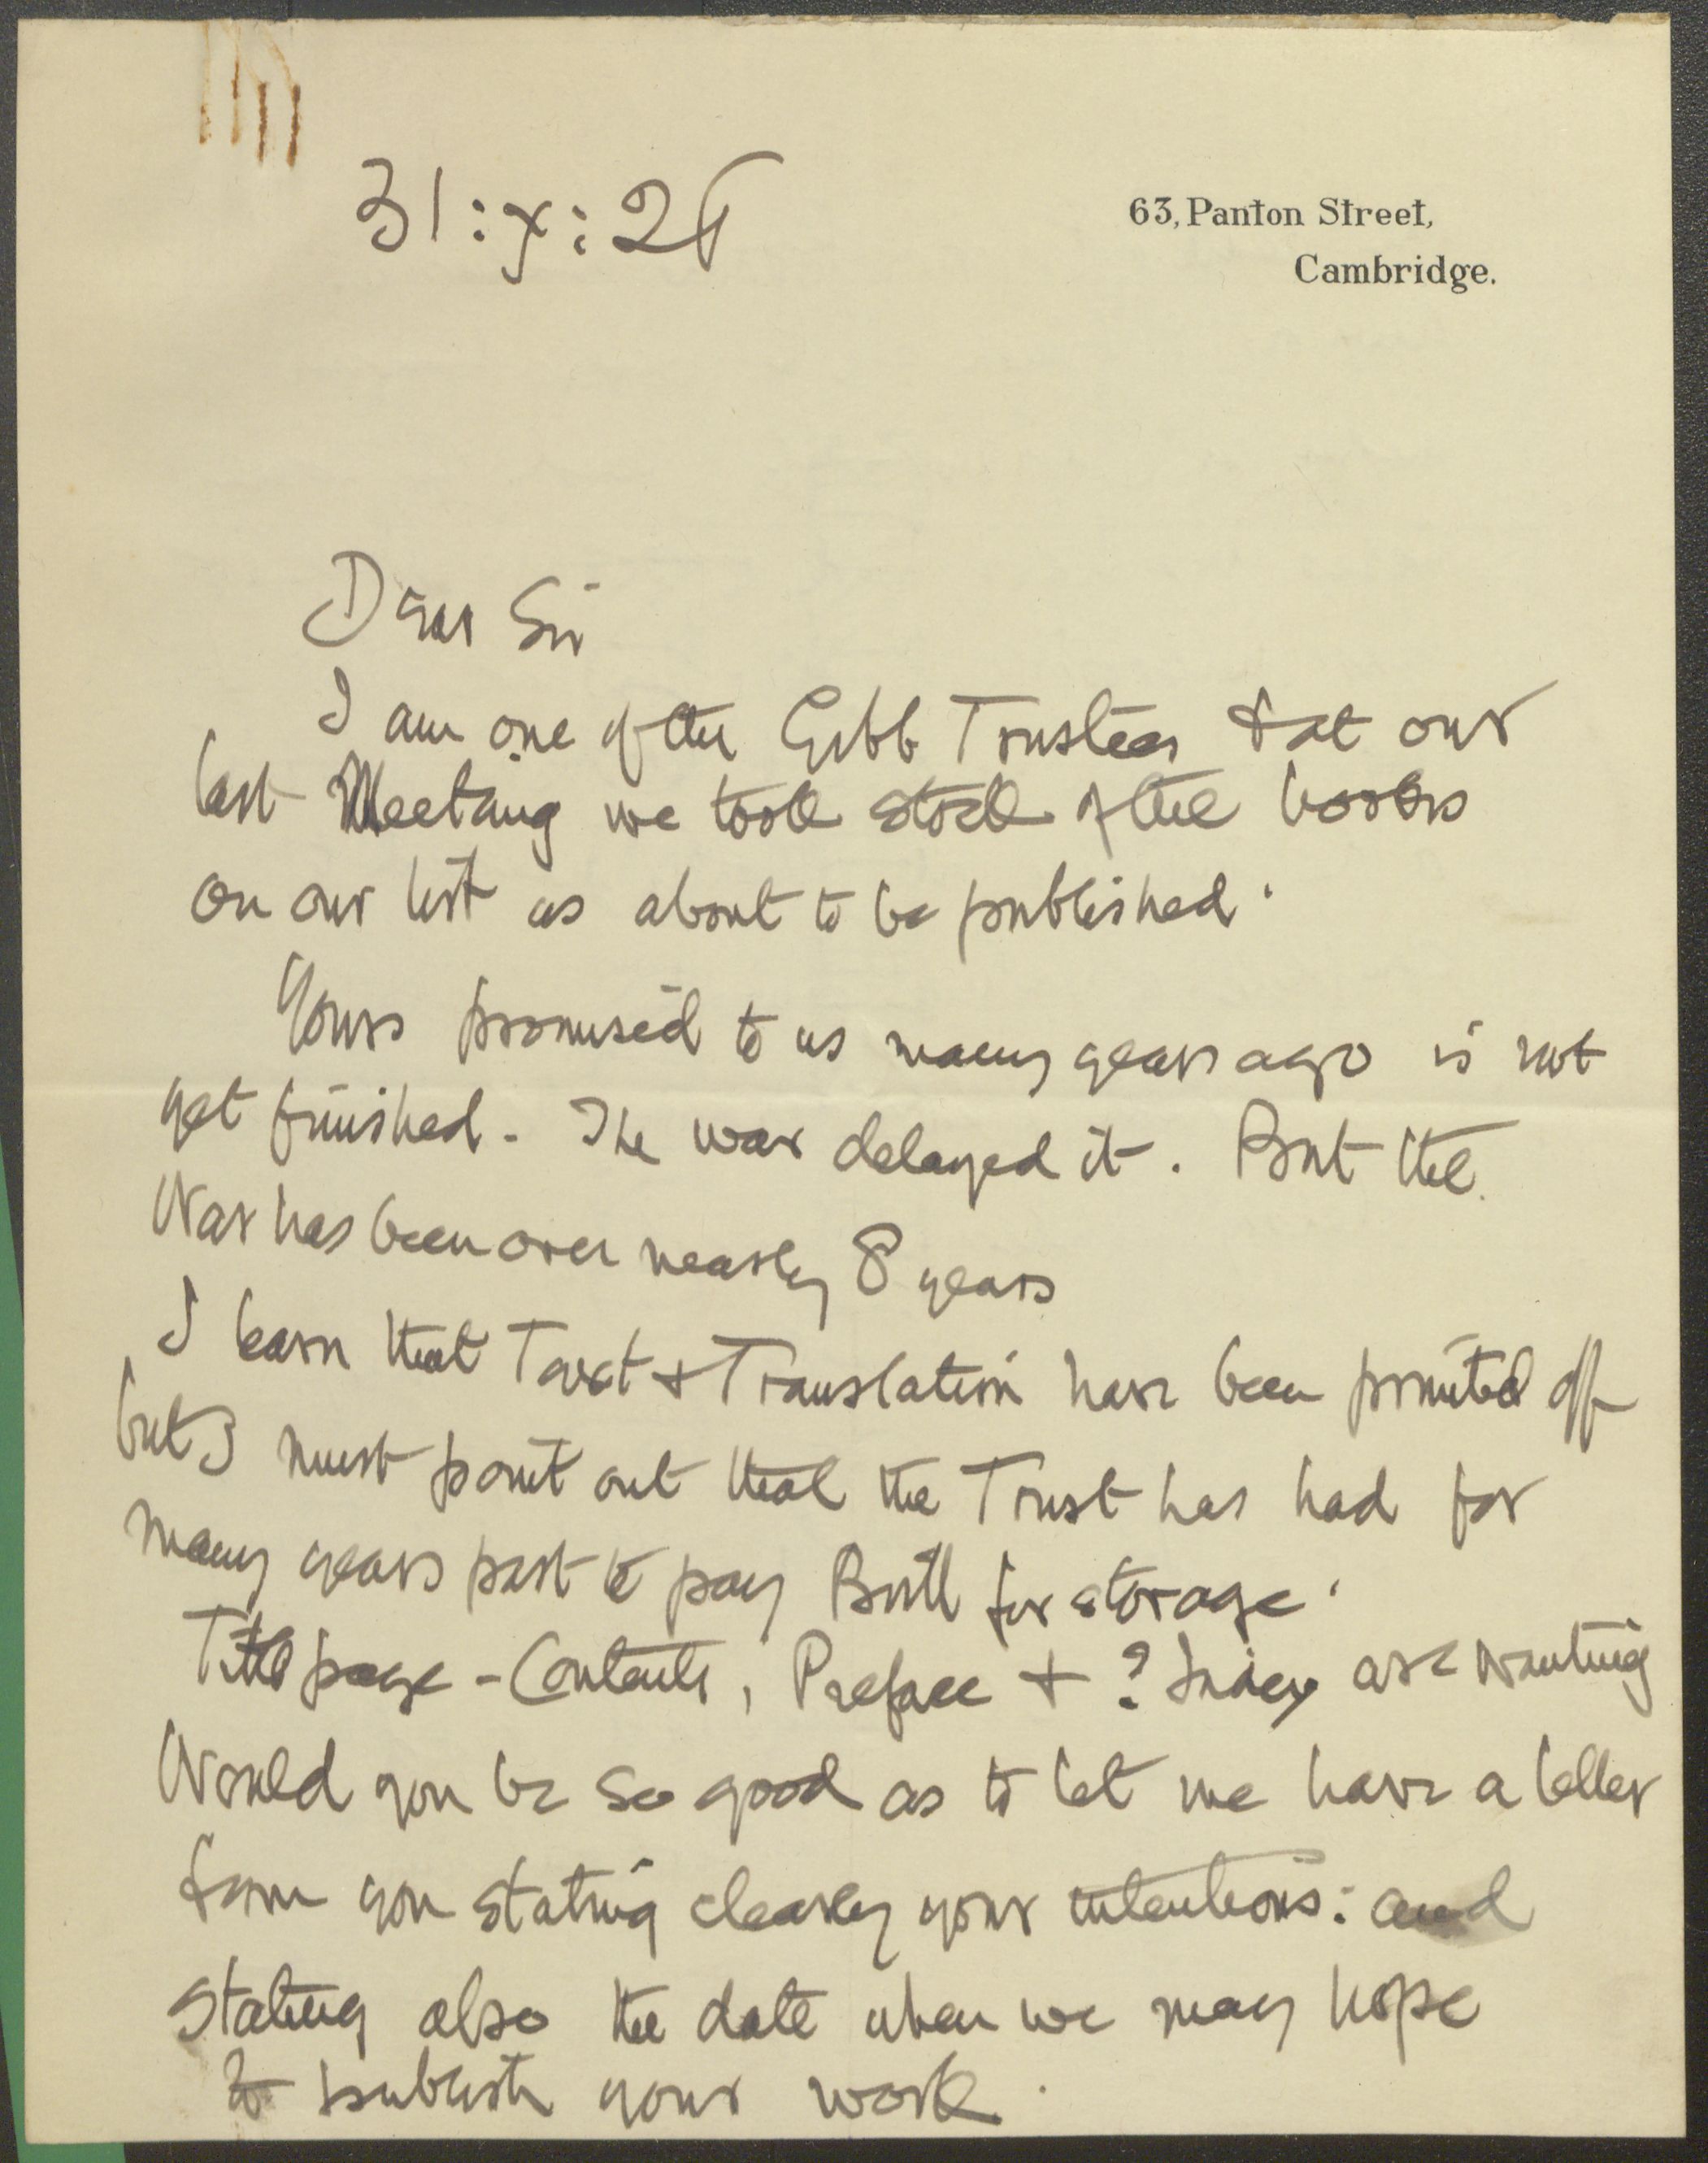 31:x:26
63, Panton Street,
Cambridge.
Dear Sir
I am one of the Gibb Trustees & at our
last Meeting we took stock of the books
on our list as about to be published.
Yours promised to us many years ago is not
yet finished. The war delayed it. But the
War has been over nearly 8 years
I learn that Text & Translation have been printed off
but I must point out that the Trust has had for
many years past to pay Brill for storage.
Title page - Contents, Preface + ? Index are wanting
Would you be so good as to let me have a letter
from you stating clearly your intentions: and
stating also the date when we may hope
to publish your work.